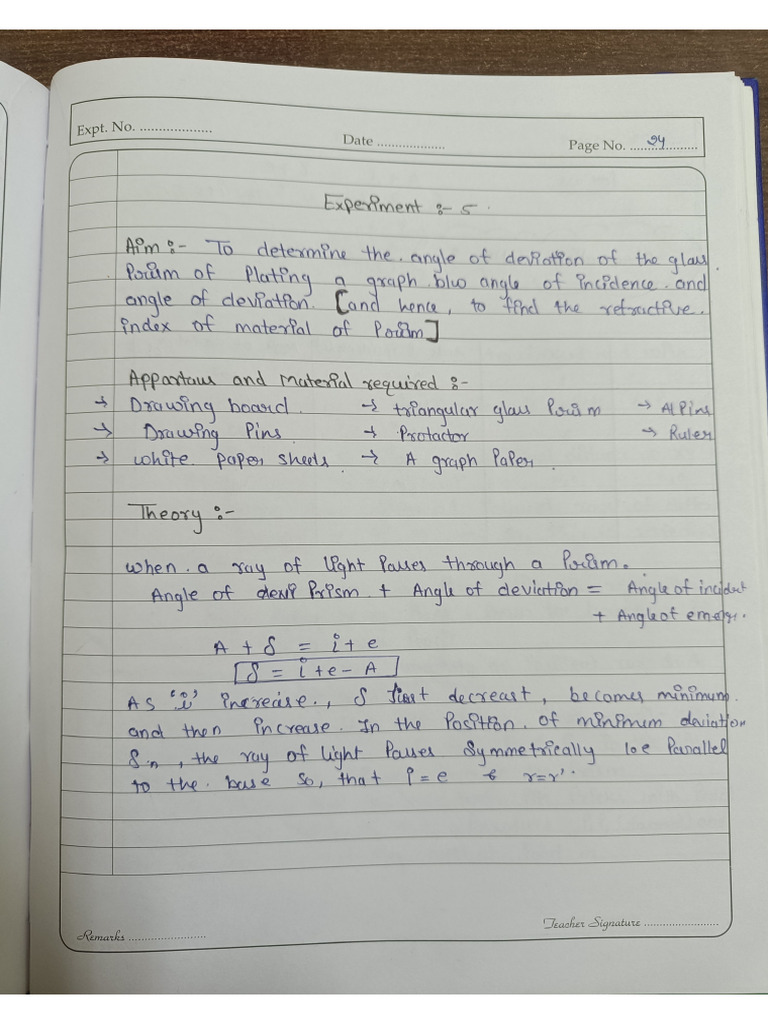 Expt. No. ...................
Date ..................
Page No. ...24...
Experiment :- 5.
Aim :- To determine the angle of deviation of the glass
Prism of Plating a graph b/w angle of incidence and
angle of deviation. [and hence, to find the refractive
index of material of Prism]
Appartaus and Material required :-
→ Drawing board → triangular glass Prism → AlPins
→ Drawing Pins → Protactor → Ruler
→ white paper sheets → A graph Paper.
Theory :-
When a ray of light Passes through a Prism.
Angle of Prism + Angle of deviation = Angle of incident
+ Angle of emerg.
A + δ = i + e
δ = i + e - A
As 'i' increase, δ first decreast, becomes minimum
and then increase. In the Position of minimum deviation
δm, the ray of light Passes Symmetrically i.e Parallel
to the base so, that i = e & r = r'.
Remarks ......................
Teacher Signature ......................